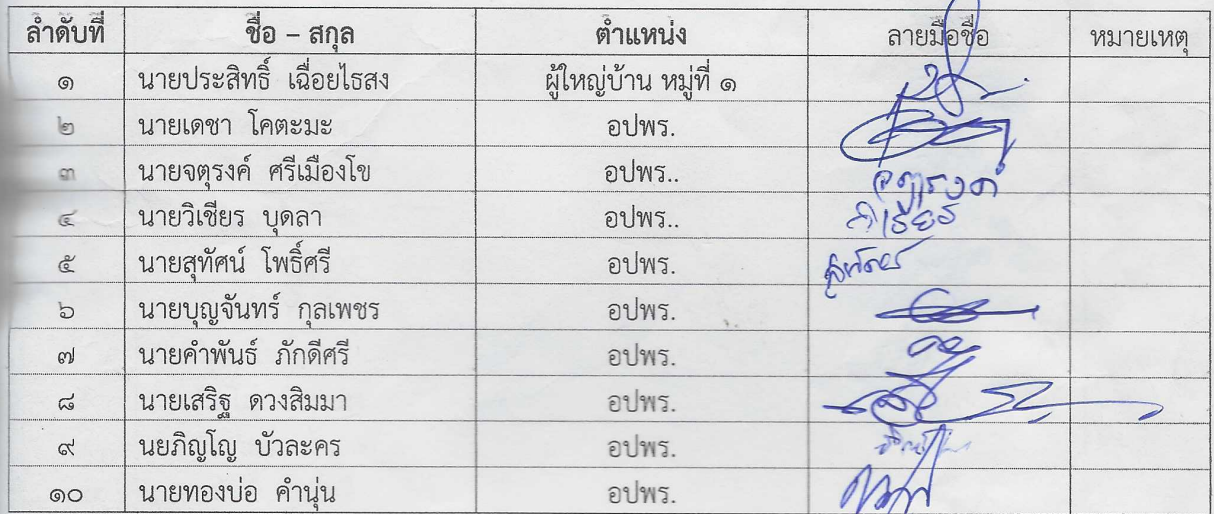 ลำดับที่ ชื่อ – สกุล ตำแหน่ง ลายมือชื่อ หมายเหตุ
๑ นายประสิทธิ์ เฉื่อยไธสง ผู้ใหญ่บ้าน หมู่ที่ ๑
๒ นายเดชา โคตะมะ อปพร.
๓ นายจตุรงค์ ศรีเมืองโข อปพร.. จตุรงค์
๔ นายวิเชียร บุดลา อปพร.. วิเชียร
๕ นายสุทัศน์ โพธิ์ศรี อปพร. สุทัศน์
๖ นายบุญจันทร์ กุลเพชร อปพร.
๗ นายคำพันธ์ ภักดีศรี อปพร.
๘ นายเสริฐ ดวงสิมมา อปพร.
๙ นยภิญโญ บัวละคร อปพร.
๑๐ นายทองบ่อ คำนุ่น อปพร.